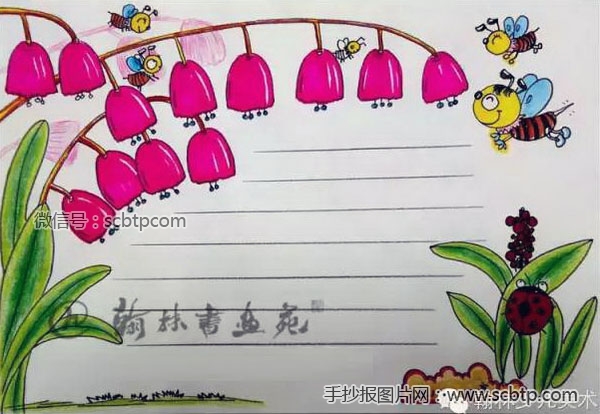 微信号：scbtpcom
翰林書画苑
手抄报图片网 www.scbtp.com
翰林少儿美术